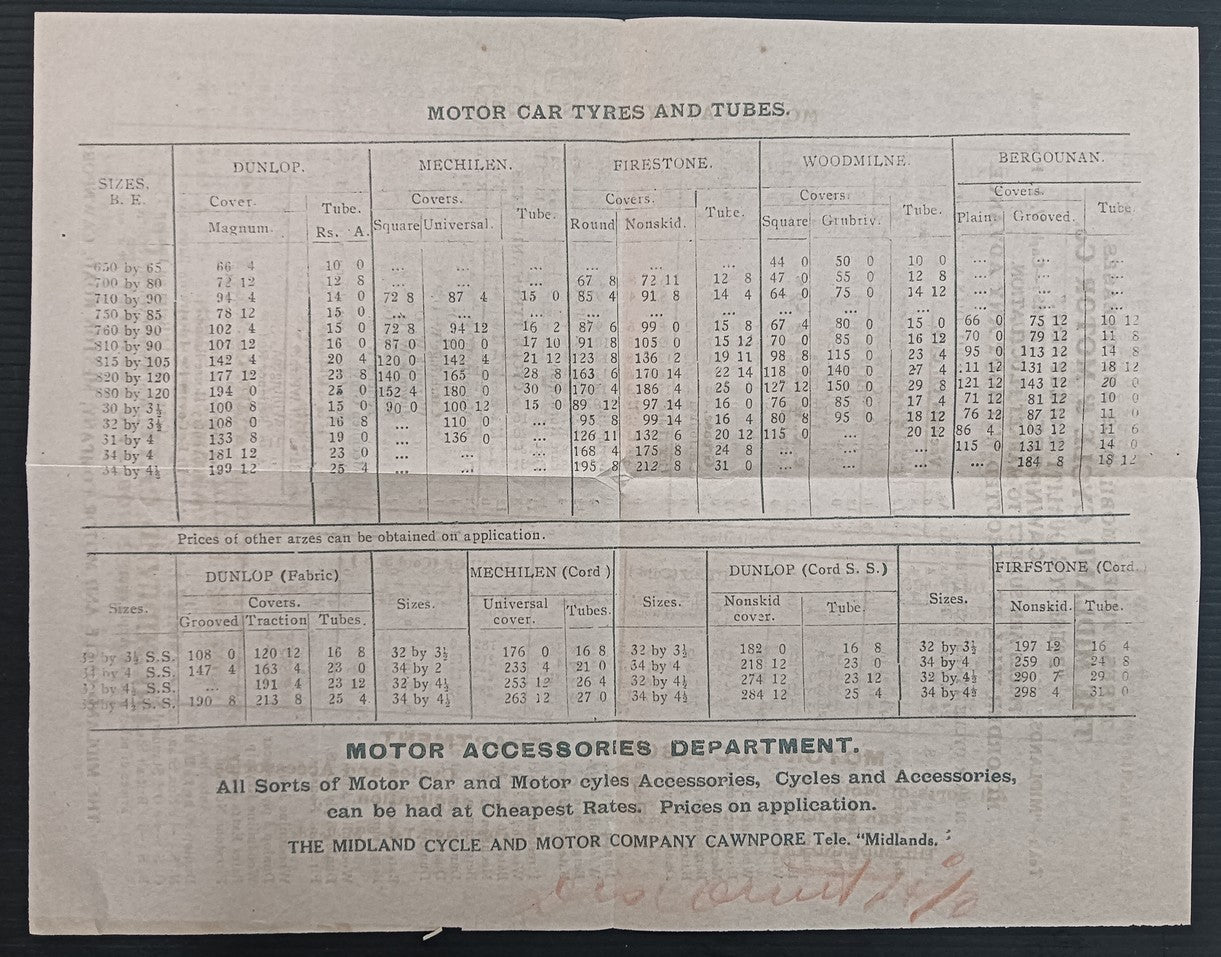 MOTOR CAR TYRES AND TUBES.
SIZES. B. E. DUNLOP. MECHILEN. FIRESTONE. WOODMILNE. BERGOUNAN.
Cover. Tube. Covers. Tube. Covers. Tube. Covers. Tube. Covers. Tube.
Magnum. Rs. A. Square Universal. Round Nonskid. Square Grubriv. Plain. Grooved.
650 by 65 66 4 10 0 ... ... ... ... ... ... 44 0 50 0 10 0 ... ... ...
700 by 80 72 12 12 8 ... ... ... 67 8 72 11 12 8 47 0 55 0 12 8 ... ... ...
710 by 90 94 4 14 0 72 8 87 4 15 0 85 4 91 8 14 4 64 0 75 0 14 12 ... ... ...
750 by 85 78 12 15 0 ... ... ... ... ... ... ... ... ... ... ... ...
760 by 90 102 4 15 0 72 8 94 12 16 2 87 6 99 0 15 8 67 4 80 0 15 0 66 0 75 12 10 12
810 by 90 107 12 16 0 87 0 100 0 17 10 91 8 105 0 15 12 70 0 85 0 16 12 70 0 79 12 11 8
815 by 105 142 4 20 4 120 0 142 4 21 12 123 8 136 2 19 11 98 8 115 0 23 4 95 0 113 12 14 8
820 by 120 177 12 23 8 140 0 165 0 28 8 163 6 170 14 22 14 118 0 140 0 27 4 .11 12 131 12 18 12
880 by 120 194 0 25 0 152 4 180 0 30 0 170 4 186 4 25 0 127 12 150 0 29 8 121 12 143 12 20 0
30 by 3½ 100 8 15 0 90 0 100 12 15 0 89 12 97 14 16 0 76 0 85 0 17 4 71 12 81 12 10 0
32 by 3½ 108 0 16 8 ... 110 0 ... 95 8 99 14 16 4 80 8 95 0 18 12 76 12 87 12 11 0
31 by 4 133 8 19 0 ... 136 0 ... 126 11 132 6 20 12 115 0 ... 20 12 86 4 103 12 11 6
34 by 4 181 12 23 0 ... ... ... 168 4 175 8 24 8 ... ... ... 115 0 131 12 14 0
34 by 4½ 199 12 25 4 ... ... ... 195 8 212 8 31 0 ... ... ... ... 184 8 18 12
Prices of other arzes can be obtained on application.
Sizes. DUNLOP (Fabric) Sizes. MECHILEN (Cord) Sizes. DUNLOP (Cord S. S.) Sizes. FIRFSTONE (Cord.)
Covers. Universal cover. Tubes. Nonskid cover. Tube. Nonskid. Tube.
Grooved Traction Tubes.
by 3½ S.S. 108 0 120 12 16 8 32 by 3½ 176 0 16 8 32 by 3½ 182 0 16 8 32 by 3½ 197 12 16 4
34 by 4 S.S. 147 4 163 4 23 0 34 by 2 233 4 21 0 34 by 4 218 12 23 0 34 by 4 259 0 24 8
32 by 4½ S.S. ... 191 4 23 12 32 by 4½ 253 12 26 4 32 by 4½ 274 12 23 12 32 by 4½ 290 7 29 0
35 by 4½ S. S. 190 8 213 8 25 4 34 by 4½ 263 12 27 0 34 by 4½ 284 12 25 4 34 by 4½ 298 4 31 0
MOTOR ACCESSORIES DEPARTMENT.
All Sorts of Motor Car and Motor cyles Accessories, Cycles and Accessories,
can be had at Cheapest Rates. Prices on application.
THE MIDLAND CYCLE AND MOTOR COMPANY CAWNPORE Tele. "Midlands.